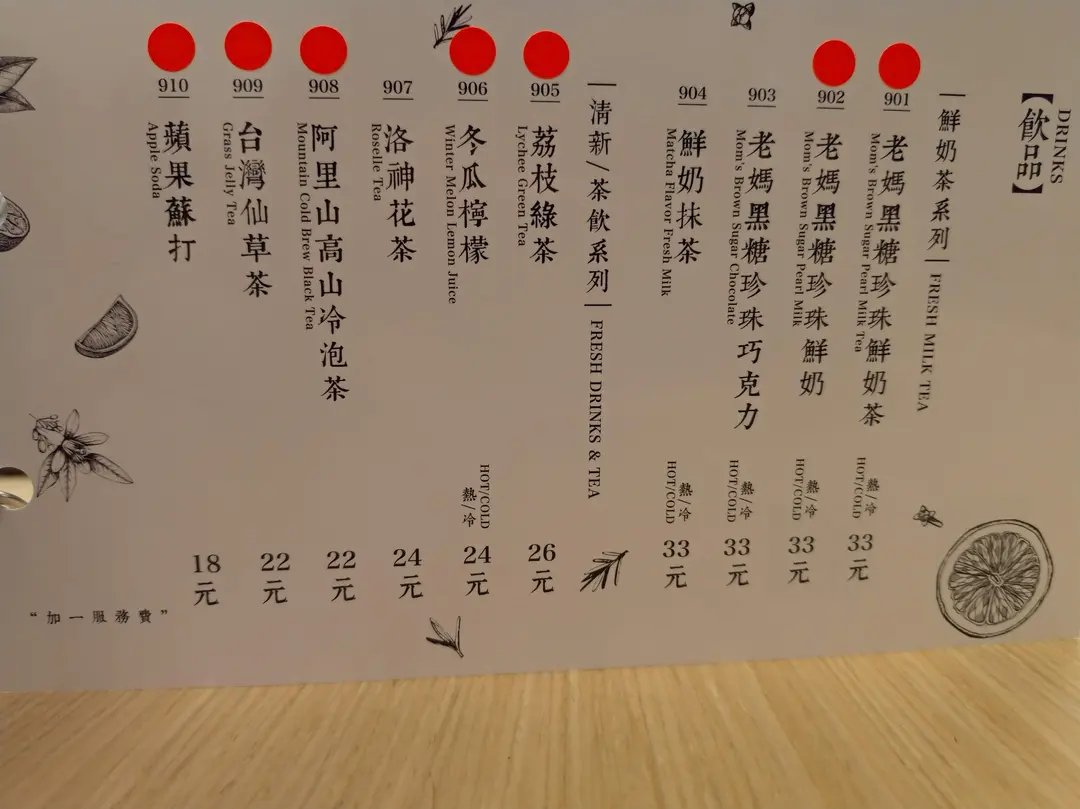 【飲品】
DRINKS
鮮奶茶系列 FRESH MILK TEA
901
老媽黑糖珍珠鮮奶茶
Mom's Brown Sugar Pearl Milk Tea
熱/冷
HOT/COLD
33元
902
老媽黑糖珍珠鮮奶
Mom's Brown Sugar Pearl Milk
熱/冷
HOT/COLD
33元
903
老媽黑糖珍珠巧克力
Mom's Brown Sugar Chocolate
熱/冷
HOT/COLD
33元
904
鮮奶抹茶
Matcha Flavor Fresh Milk
熱/冷
HOT/COLD
33元
清新/茶飲系列 FRESH DRINKS & TEA
905
荔枝綠茶
Lychee Green Tea
26元
906
冬瓜檸檬
Winter Melon Lemon Juice
HOT/COLD
熱/冷
24元
907
洛神花茶
Roselle Tea
24元
908
阿里山高山冷泡茶
Mountain Cold Brew Black Tea
22元
909
台灣仙草茶
Grass Jelly Tea
22元
910
蘋果蘇打
Apple Soda
18元
“加一服務費”